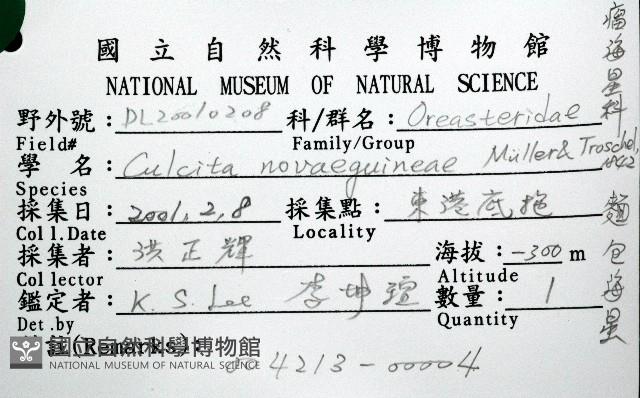 國立自然科學博物館
NATIONAL MUSEUM OF NATURAL SCIENCE
野外號：DL20010208 科/群名：Oreasteridae
Field# Family/Group
學 名：Culcita novaeguineae Müller & Troschel, 1842
Species
採集日：2001,2,8 採集點：東港底拖
Coll.Date Locality
採集者：洪正輝 海拔：-300 m
Collector Altitude
鑑定者：K. S. Lee 李坤瑄 數量：1
Det.by Quantity
(Remarks)：
4213-00004
瘤海星科
麵包海星
國立自然科學博物館
NATIONAL MUSEUM OF NATURAL SCIENCE